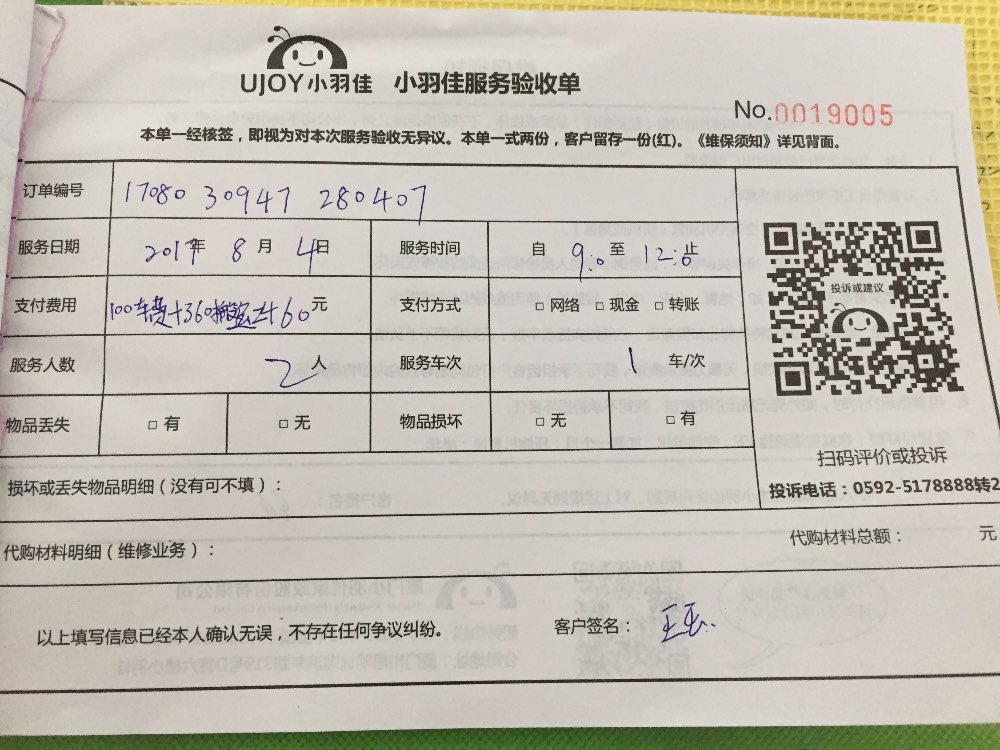 UJOY小羽佳 小羽佳服务验收单
No.0019005
本单一经核签，即视为对本次服务验收无异议。本单一式两份，客户留存一份(红)。《维保须知》详见背面。
订单编号 17080 30947 280407
服务日期 2017年 8月 4日 服务时间 自 9:0 至 12:0 止
支付费用 100车费+360搬运+60元 支付方式 □ 网络 □ 现金 □ 转账
服务人数 2人 服务车次 1 车/次
物品丢失 □ 有 □ 无 物品损坏 □ 无 □ 有
投诉或建议
扫码评价或投诉
投诉电话：0592-5178888转2
损坏或丢失物品明细（没有可不填）：
代购材料明细（维修业务）： 代购材料总额： 元
以上填写信息已经本人确认无误，不存在任何争议纠纷。 客户签名：